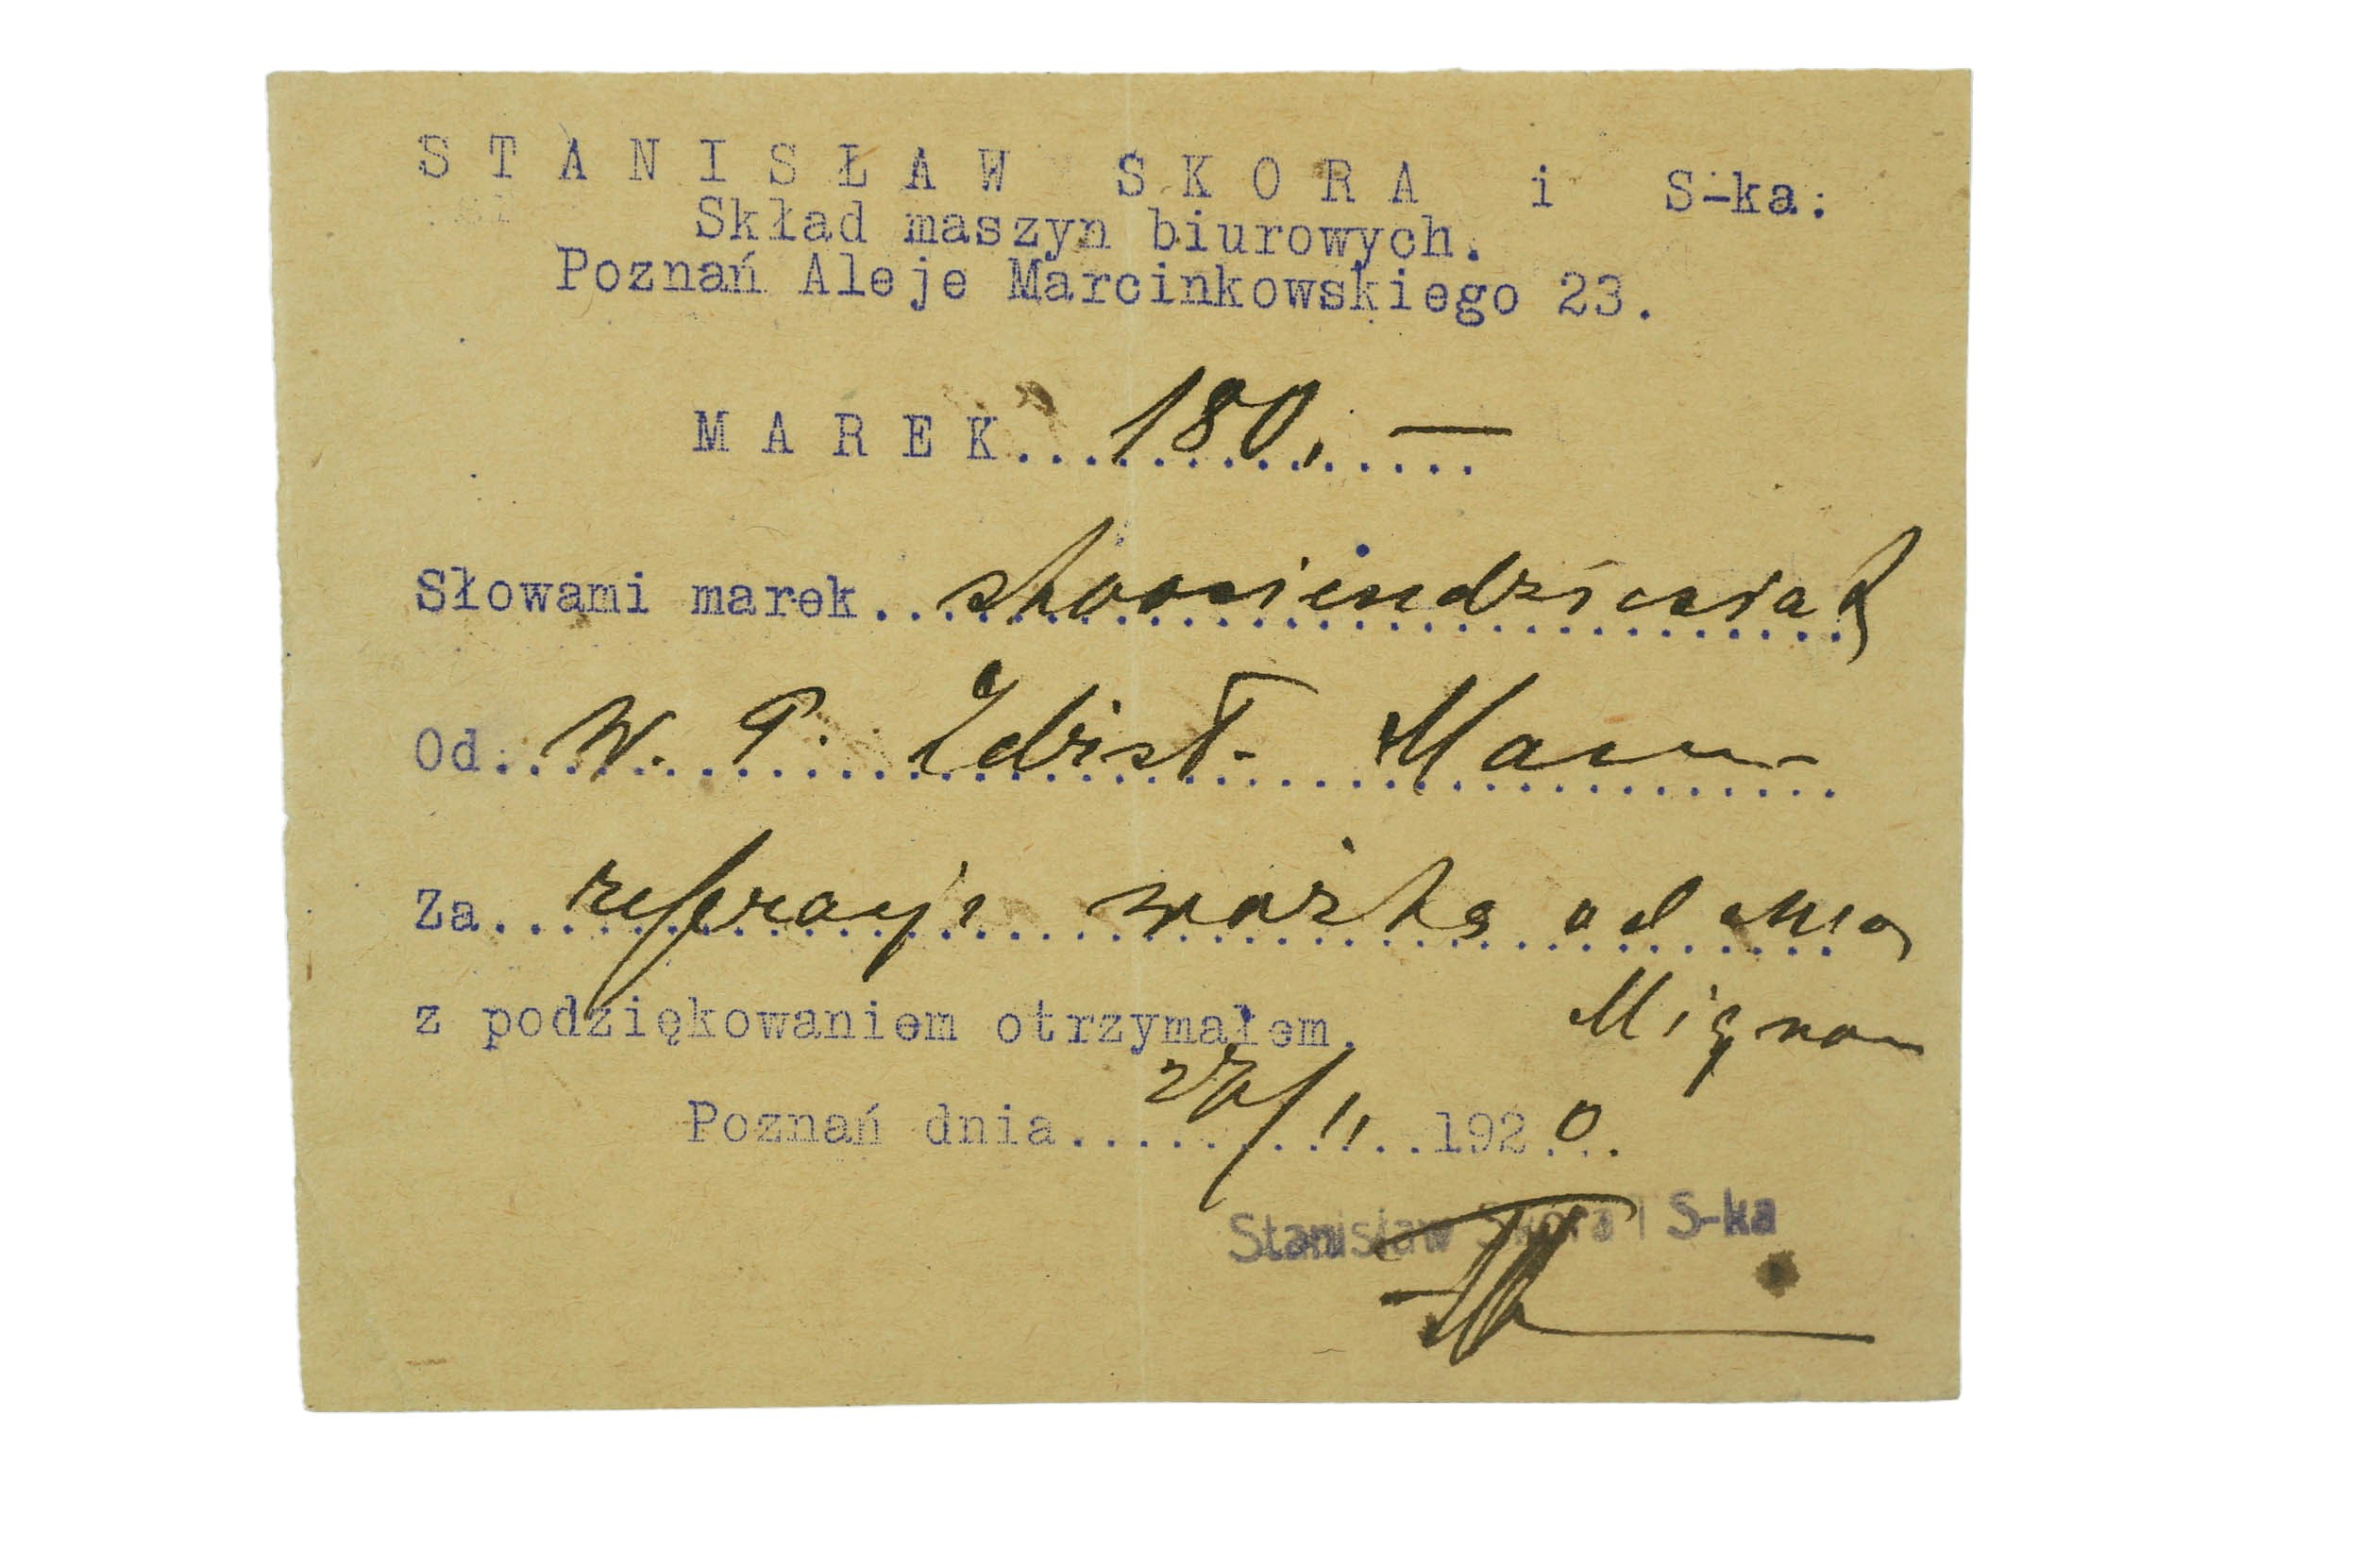 STANISŁAW SKORA i S-ka.
Skład maszyn biurowych.
Poznań Aleje Marcinkowskiego 23.
MAREK...180,—
Słowami marek...stoosiemdziesiąt
Od...W. P. Zdzisł. Mann
Za...reperacje wózka od
Mignon
z podziękowaniem otrzymałem.
Poznań dnia.........11..1920.
Stanisław Skóra i S-ka